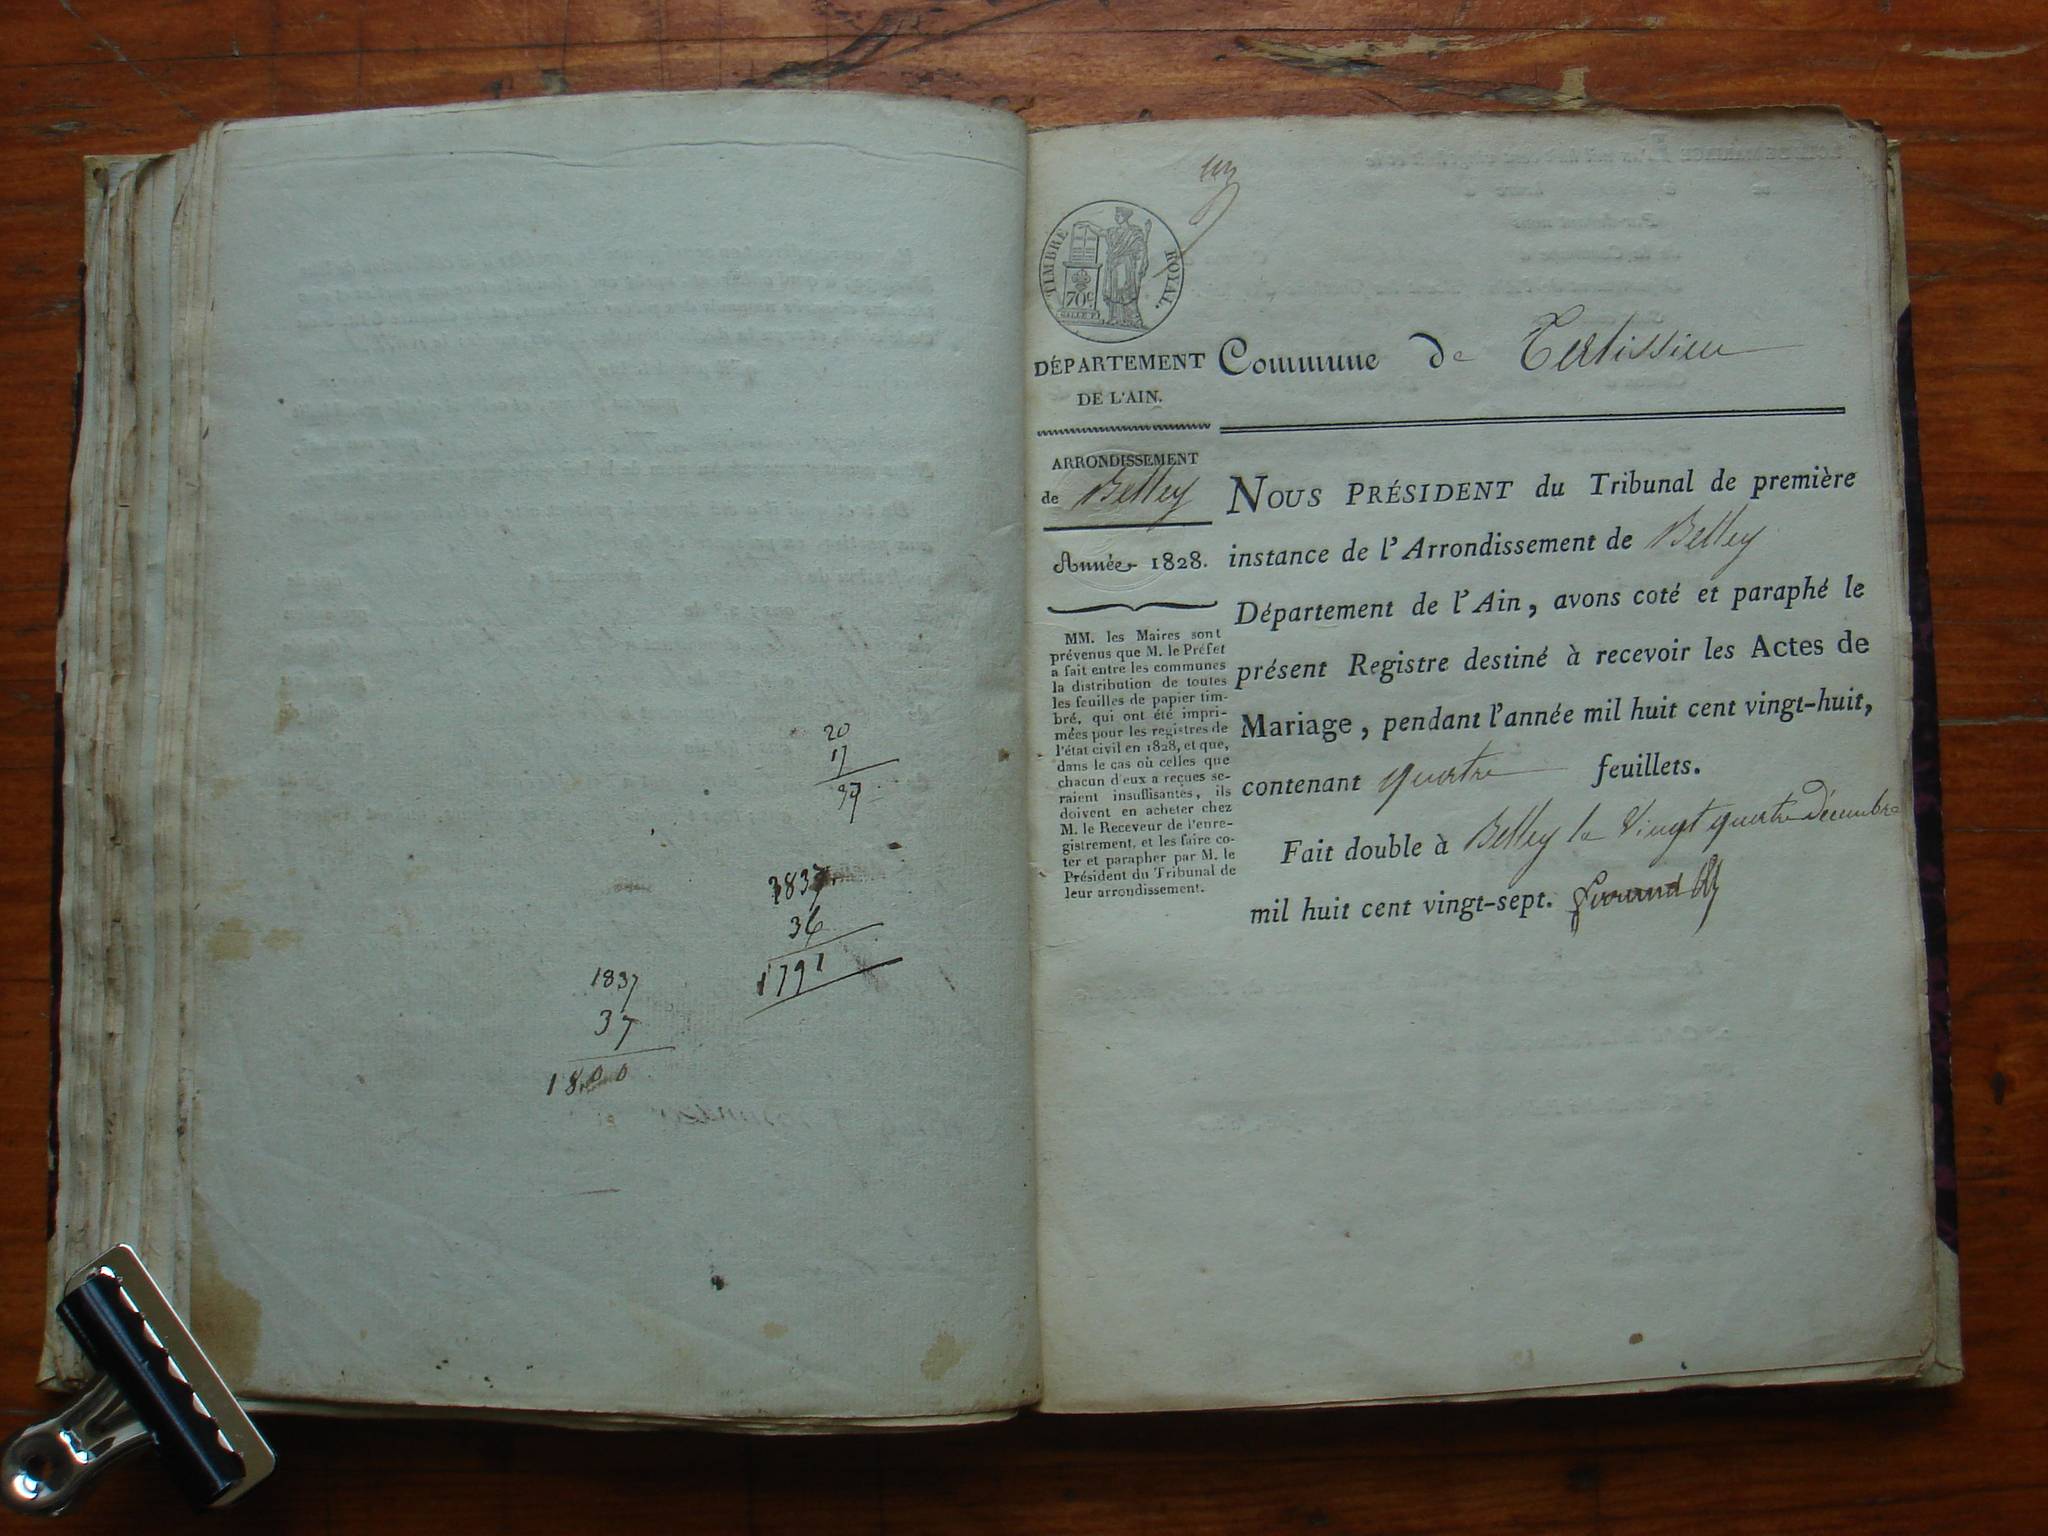 20
17
37
1837
36
1791
1837
37
1800
TIMBRE ROYAL.
70c
DÉPARTEMENT
DE L'AIN.
ARRONDISSEMENT
de Belley
Année 1828.
MM. les Maires sont
prévenus que M. le Préfet
a fait entre les communes
la distribution de toutes
les feuilles de papier tim-
bré, qui ont été impri-
mées pour les registres de
l'état civil en 1828, et que,
dans le cas où celles que
chacun d'eux a reçues se-
raient insuffisantes, ils
doivent en acheter chez
M. le Receveur de l'enre-
gistrement, et les faire co-
ter et parapher par M. le
Président du Tribunal de
leur arrondissement.
Commune de Tertissieu
NOUS PRÉSIDENT du Tribunal de première
instance de l'Arrondissement de Belley
Département de l'Ain, avons coté et paraphé le
présent Registre destiné à recevoir les Actes de
Mariage, pendant l'année mil huit cent vingt-huit,
contenant quatre feuillets.
Fait double à Belley le Vingt quatre Décembre
mil huit cent vingt-sept.